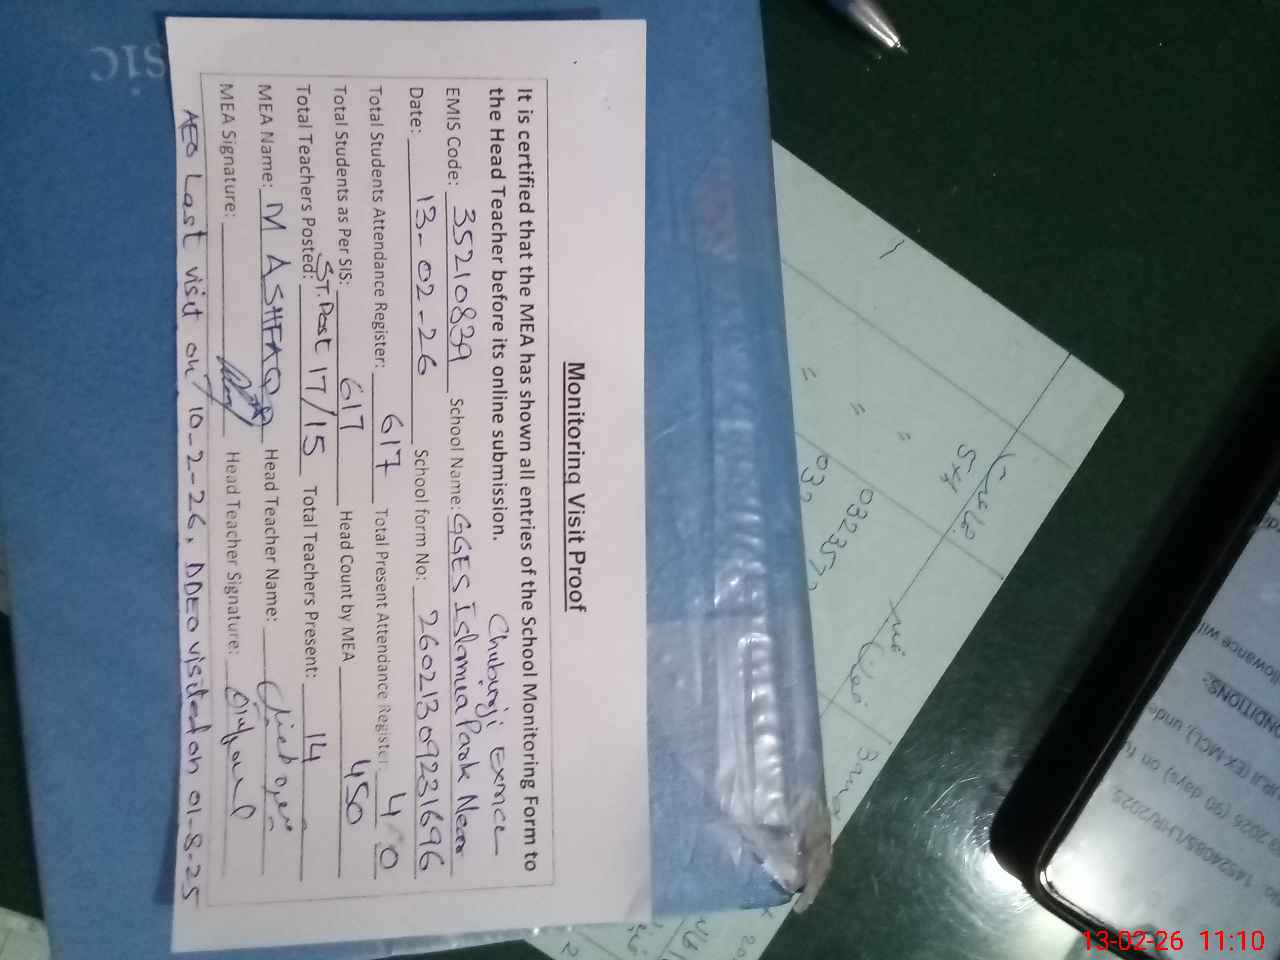 Monitoring Visit Proof
It is certified that the MEA has shown all entries of the School Monitoring Form to
the Head Teacher before its online submission.
Chuburji Exmcl
EMIS Code: 35210839 School Name: GGES Islamia Park Near
Date: 13-02-26 School form No: 26021309231696
Total Students Attendance Register: 617 Total Present Attendance Register: 4 0
Total Students as Per SIS: 617 Head Count by MEA 450
Total Teachers Posted: ST. Post 17/15 Total Teachers Present: 14
MEA Name: M ASHFAQ Head Teacher Name:
MEA Signature: Head Teacher Signature:
AEO Last visit on 10-2-26, DDEO visited on 01-8-25
SIC
032357
032
No. 1452408S/LHR/2025.
2026 (90 days) on
(EX-MCL) unde
ONDITIONS:-
llowance wil
13-02-26 11:10